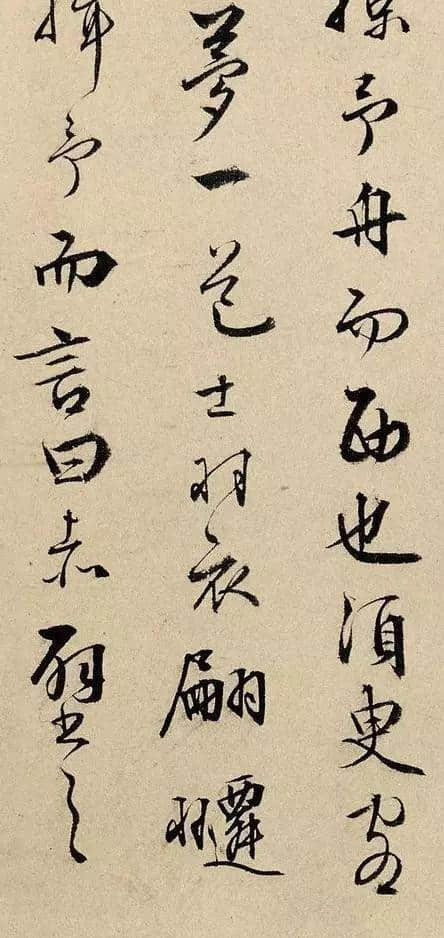 掠予舟而西也須臾客
夢一道士羽衣翩躚
揖予而言曰赤壁之